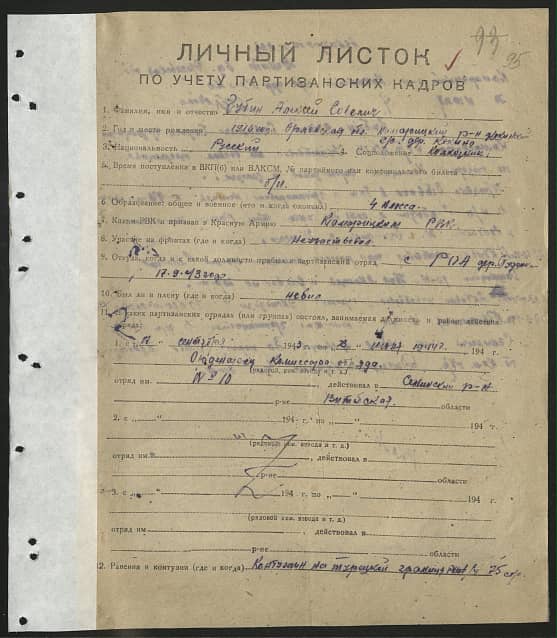 93
95
ЛИЧНЫЙ ЛИСТОК
ПО УЧЕТУ ПАРТИЗАНСКИХ КАДРОВ
1. Фамилия, имя и отчество Алексей
2. Год и место рождения Орловская Комарицкий р-н
3. Национальность Русский 4. Соцположение колхозник
5. Время поступления в ВКП(б) или ВЛКСМ, № партийного или комсомольского билета
б/п.
6. Образование: общее и военное (что и когда окончил) 4 класса
7. Каким РВК и призван в Красную Армию Комарицким РВК
8. Участие на фронтах (где и когда)
9. Откуда, когда и с какой должности прибыл в партизанский отряд с РОА дер.
17-9-43 года
10. Был ли в плену (где и когда) не был
11. В каких партизанских отрядах (или группах) состоял, занимаемая должность и район действия
отряда:
1. с „17“ сентября 1943 г. по 1944 г. 194 г.
комиссара отряда
(рядовой, ком. взвода и т. д.)
отряд им. № 10, действовал в Сенинский р-н
р-не Витебской области
2. с „—“ 194 г. по „—“ 194 г.
(рядовой ком. взвода и т. д.)
отряд им., действовал в
р-не области
3. с „—“ 194 г. по „—“ 194 г.
(рядовой ком. взвода и т. д.)
отряд им., действовал в
р-не области
12. Ранения и контузии (где и когда) Контужен на турецкой границе